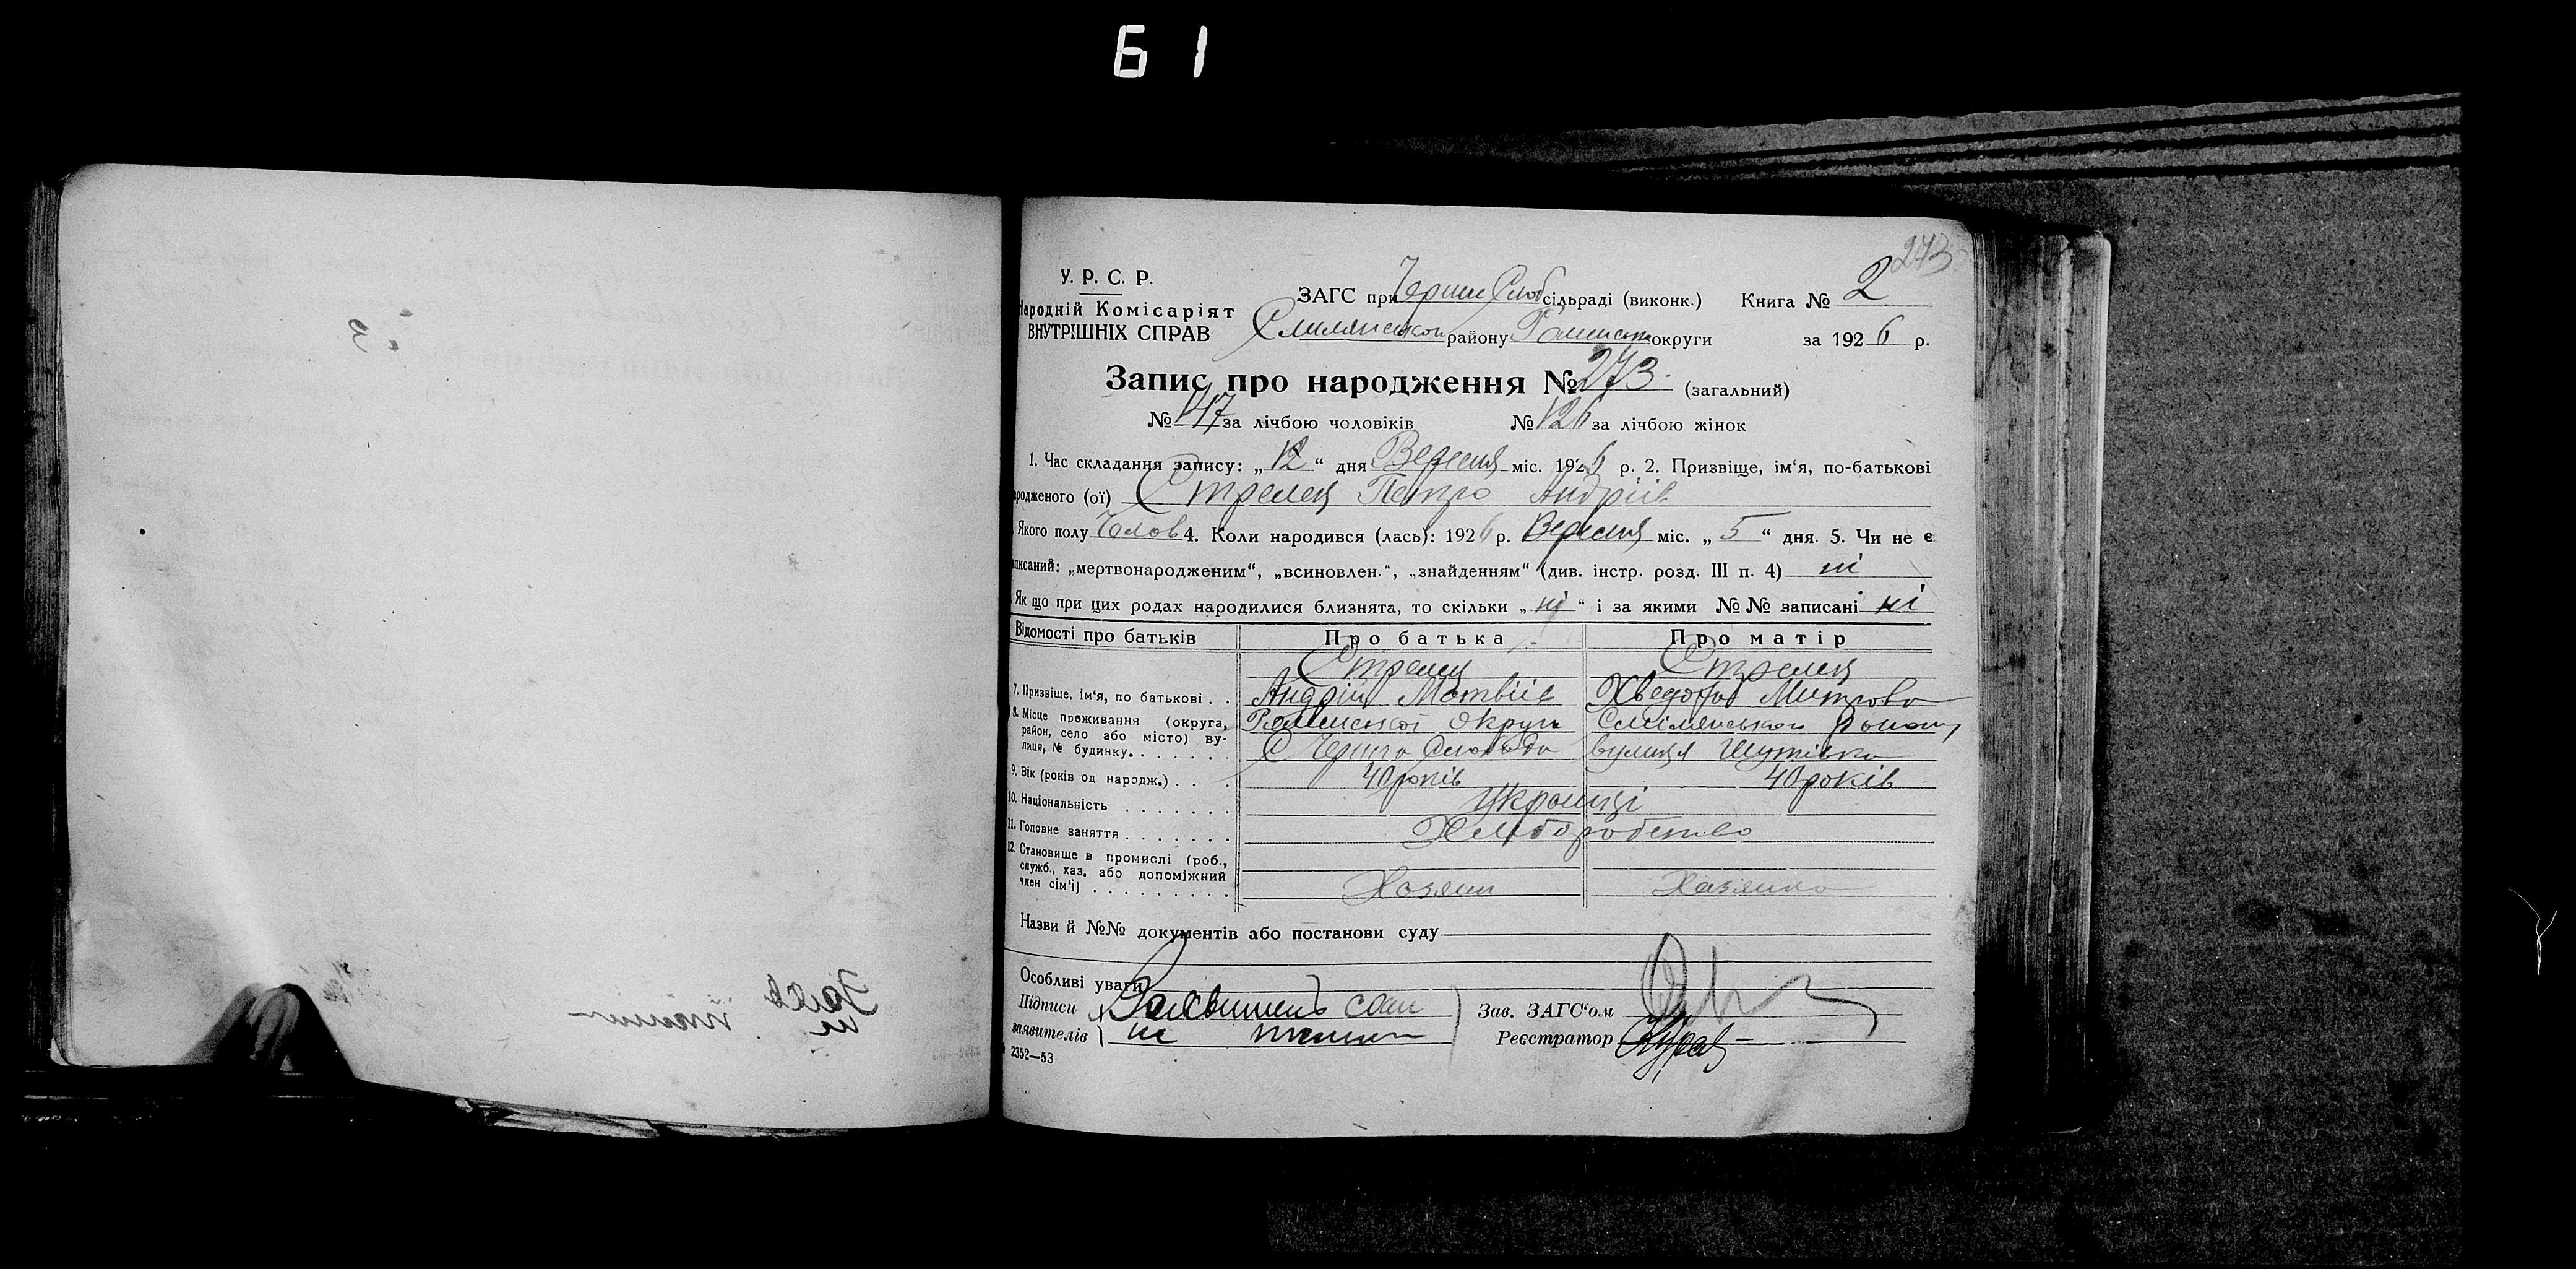 61
273
У. Р. С. Р.
Народній Комісаріят
ВНУТРІШНІХ СПРАВ
ЗАГС при сільраді (виконк.) Книга № 2
району округи за 1926 р.
Запис про народження № 273. (загальний)
№ 147 за лічбою чоловіків № 126 за лічбою жінок
1. Час складання запису: „12“ дня Вересня міс. 1926 р. 2. Призвіще, ім‘я, по-батькові
народженого (ої) Стрелец Петро Андріів
Якого полу Чолов 4. Коли народився (лась): 1926 р. Вересня міс. „5“ дня. 5. Чи не є
записаний: „мертвонародженим“, „всиновлен.“, „знайденням“ (див. інстр. розд. III п. 4) ні
Як що при цих родах народилися близнята, то скільки „ні“ і за якими №№ записані ні
Відомості про батьків Про батька Про матір
Стрелец Стрелец
7. Призвіще, ім‘я, по батькові . . Андрій Матвіів
8. Місце проживання (округа, район, село або місто) вулиця, № будинку. Роменської округи
С Черна Слобода вулиця Шутівка
9. Вік (років од народж.) . . . 40 років 40 років
10. Національність . . . . . . . Украінці
11. Головне заняття . . . . . . . Хліборобство
12. Становище в промислі (роб.,
служб., хаз. або допоміжний
член сім‘ї) . . . . . . . . . Хазяин Хазяйка
Назви й №№ документів або постанови суду
Особливі уваги
Підписи
заявителів не
Зав. ЗАГС‘ом
Реєстратор
2352—53